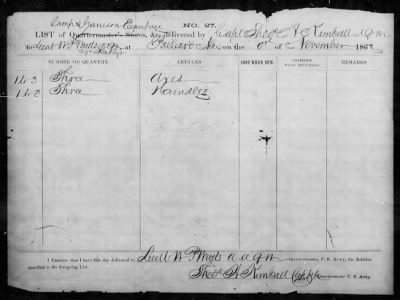 Camp & Garrison Equipage
NO. 27.
LIST of Quartermaster's Stores, &c delivered by Capt Theo H Kimball AQM
to Lieut W at Pollard Ala on the of November 186
NUMBER OR QUANTITY. ARTICLES REMARKS
Three Axes
Three Handles
I Certify that I have this day delivered to Lieut W A A Q M Quartermaster C. S. Army, the Articles
specified in the foregoing List.
Theo H Kimball Capt & Quartermaster C. S. Army.